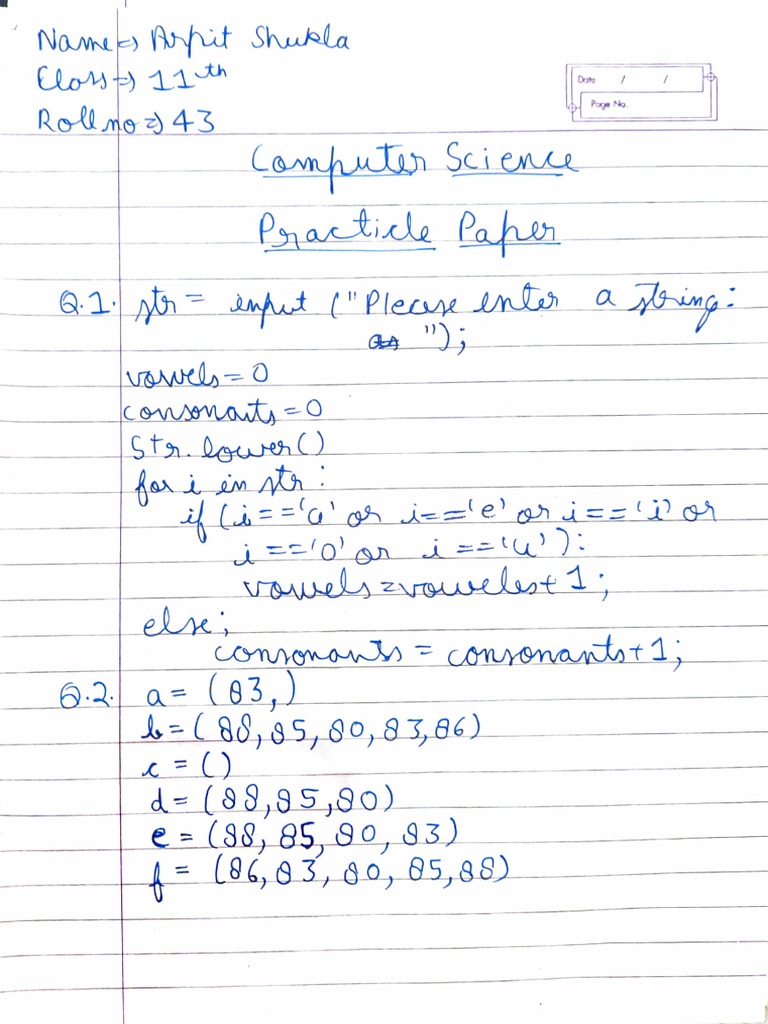 Name => Arpit Shukla
Class => 11th
Roll no => 43
Date / /
Page No.
Computer Science
Practicle Paper
Q.1. str = input ("Please enter a string:
");
vowels = 0
consonants = 0
Str. lower()
for i in str :
if (i == 'a' or i == 'e' or i == 'i' or
i == 'o' or i == 'u'):
vowels = voweles + 1;
else;
consonants = consonants + 1;
Q.2. a = (83,)
b = (88, 85, 80, 83, 86)
c = ()
d = (88, 85, 80)
e = (88, 85, 80, 83)
f = (86, 83, 80, 85, 88)